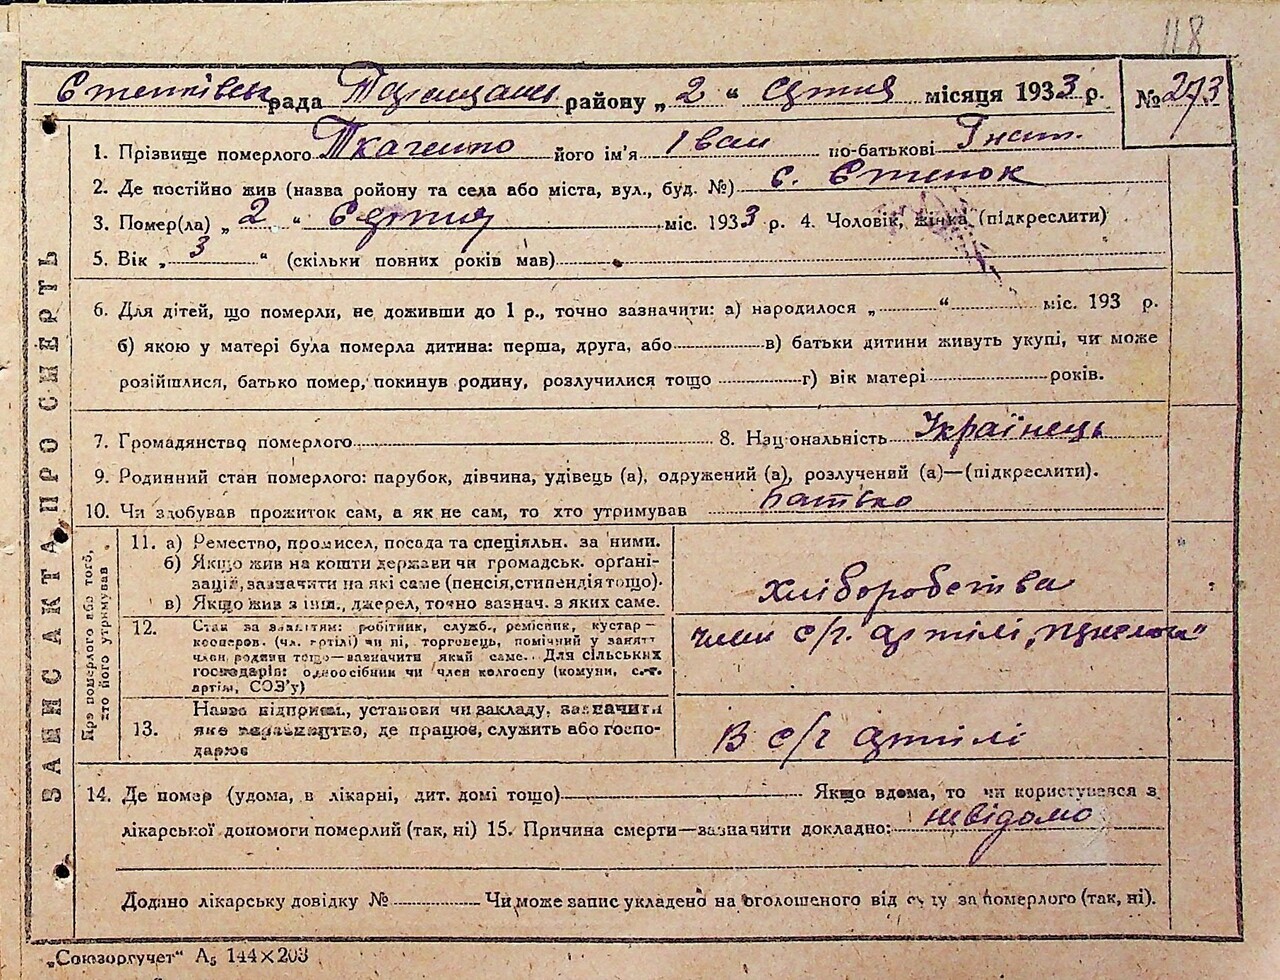 118
Степківськ рада Таращанськ району „2“ сятня місяця 1933 р. №273
1. Прізвище померлого Ткаченко його ім'я Іван по-батькові Гнат.
2. Де постійно жив (назва району та села або міста, вул., буд. №) с. Степок
3. Помер(ла) „2“ сятня міс. 1933 р. 4. Чоловік, жінка (підкреслити)
5. Вік „3“ (скільки повних років мав)
6. Для дітей, що померли, не доживши до 1 р., точно зазначити: а) народилося „ “ міс. 193 р.
б) якою у матері була померла дитина: перша, друга, або в) батьки дитини живуть укупі, чи може
розійшлися, батько помер, покинув родину, розлучилися тощо г) вік матері років.
7. Громадянство померлого 8. Національність Українець
9. Родинний стан померлого: парубок, дівчина, удівець (а), одружений (а), розлучений (а)—(підкреслити).
10. Чи здобував прожиток сам, а як не сам, то хто утримував батько
ЗАПИС АКТА ПРО СМЕРТЬ
Про померлого або того,
хто його утримував
11. а) Ремество, промисел, посада та спеціяльн. за ними.
б) Якщо жив на кошти держави чи громадськ. орґані-
зацій, зазначити на які саме (пенсія, стипендія тощо).
в) Якщо жив з інш., джерел, точно зазнач. з яких саме.
хліборобства
12. Стан за заняттям: робітник, служб., ремісник, кустар—
кооперов. (чл. артілі) чи ні, торговець, помічний у занятт
член родини тощо—зазначити який саме. Для сільських
господарів: одноосібник чи член колгоспу (комуни, с.-г.
артіли, СОЗ'у)
член с/г. артілі
13. Назва підприєм., установи чи закладу, зазначити
яке виробництво, де працює, служить або госпо-
дарює
В с/г артілі
14. Де помер (удома, в лікарні, дит. домі тощо) Якщо вдома, то чи користувався з
лікарської допомоги померлий (так, ні) 15. Причина смерти—зазначити докладно: невідомо
Додано лікарську довідку № Чи може запис укладено на оголошеного від суду за померлого (так, ні).
„Союзоргучет“ А5 144×203